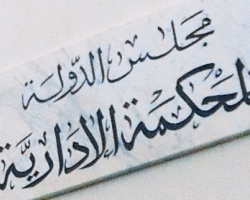 مجلس الدولة
لمحكمة الادارية